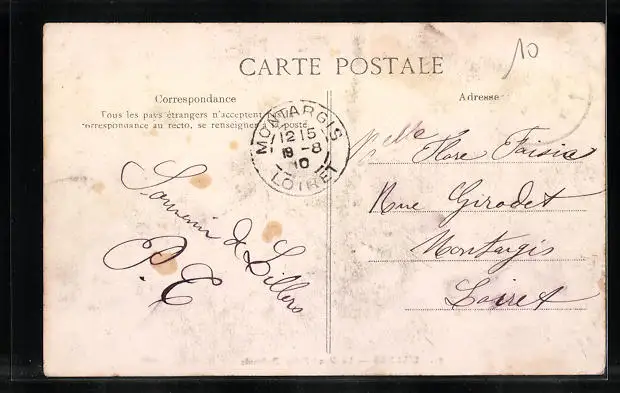 10
CARTE POSTALE
Correspondance
Tous les pays étrangers n'acceptent pas la
correspondance au recto, se renseigner à la poste.
Adresse
MONTARGIS
12 15
18 -8
10
LOIRET
Souvenir de Lillers
P. E
Melle Flore
Rue Girodet
Montargis
Loiret